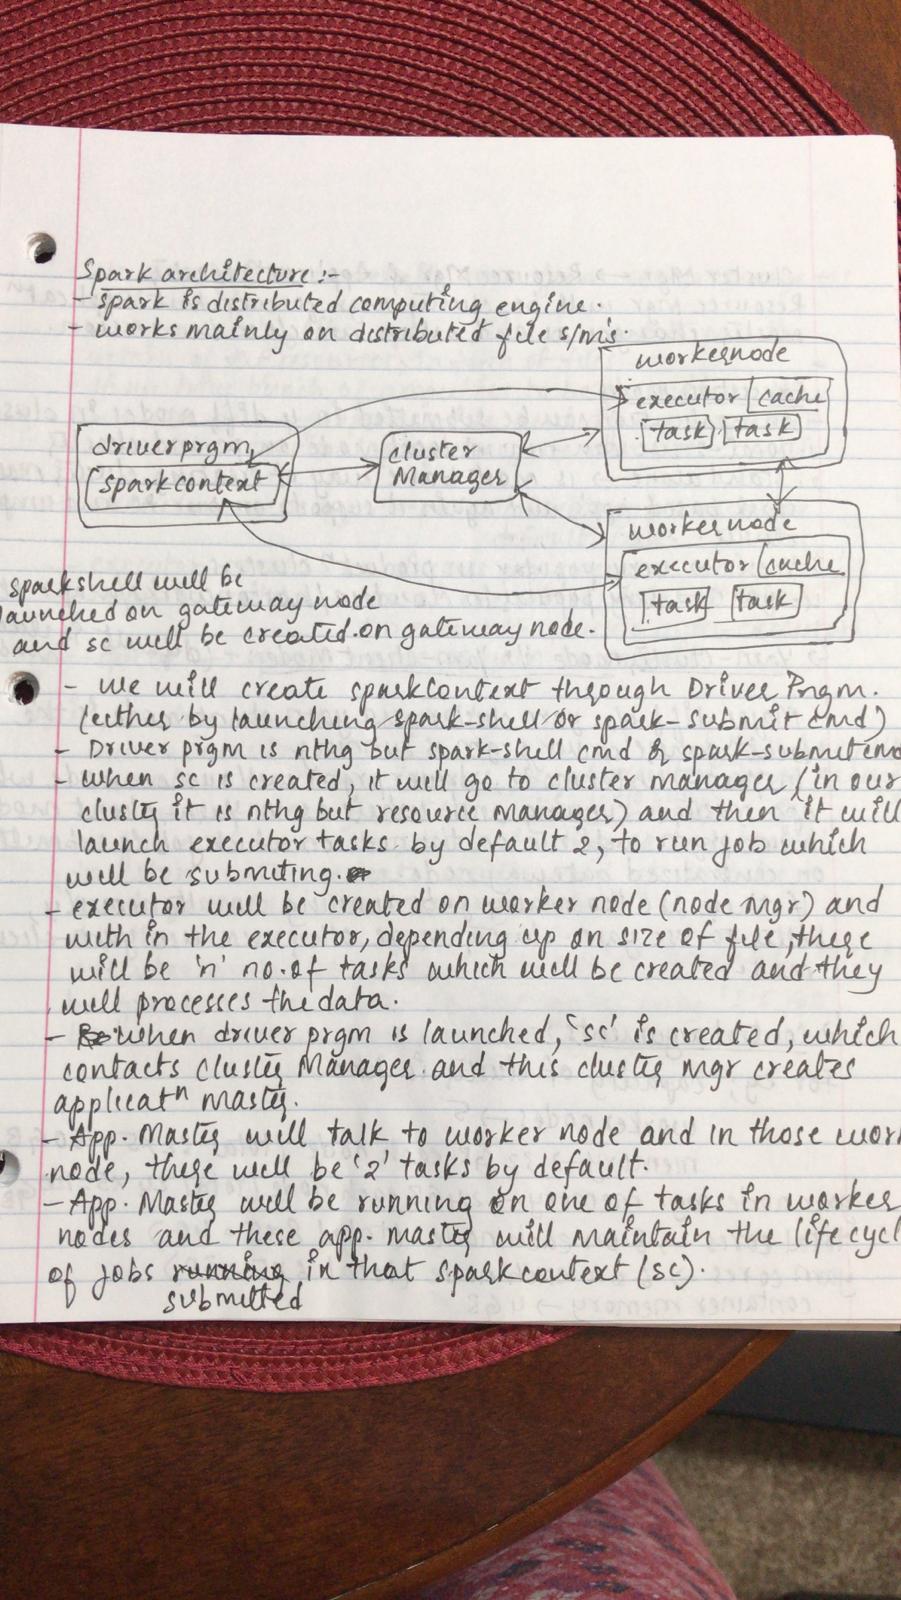 Spark architecture :-
- spark is distributed computing engine.
- works mainly on distributed file s/m's.
workernode
executor cache
task task
driver prgm
sparkcontext
cluster
Manager
workernode
executor cache
task task
sparkshell will be
launched on gateway node
and sc will be created on gateway node.
- we will create sparkContext through Driver Prgm.
(either by launching spark-shell or spark-submit cmd)
- Driver prgm is nthg but spark-shell cmd & spark-submit cmd
- when sc is created, it will go to cluster manager (in our
cluster it is nthg but resource manager) and then it will
launch executor tasks by default 2, to run job which
will be submiting.
- executor will be created on worker node (node mgr) and
with in the executor, depending up on size of file, there
will be 'n' no. of tasks which will be created and they
will processes the data.
- when driver prgm is launched, 'sc' is created, which
contacts cluster Manager and this cluster mgr creates
applicatn master.
- App. Master will talk to worker node and in those work
node, there will be '2' tasks by default.
- App. Master will be running on one of tasks in worker
nodes and these app. master will maintain the lifecycl
of jobs running in that sparkcontext (sc).
submitted